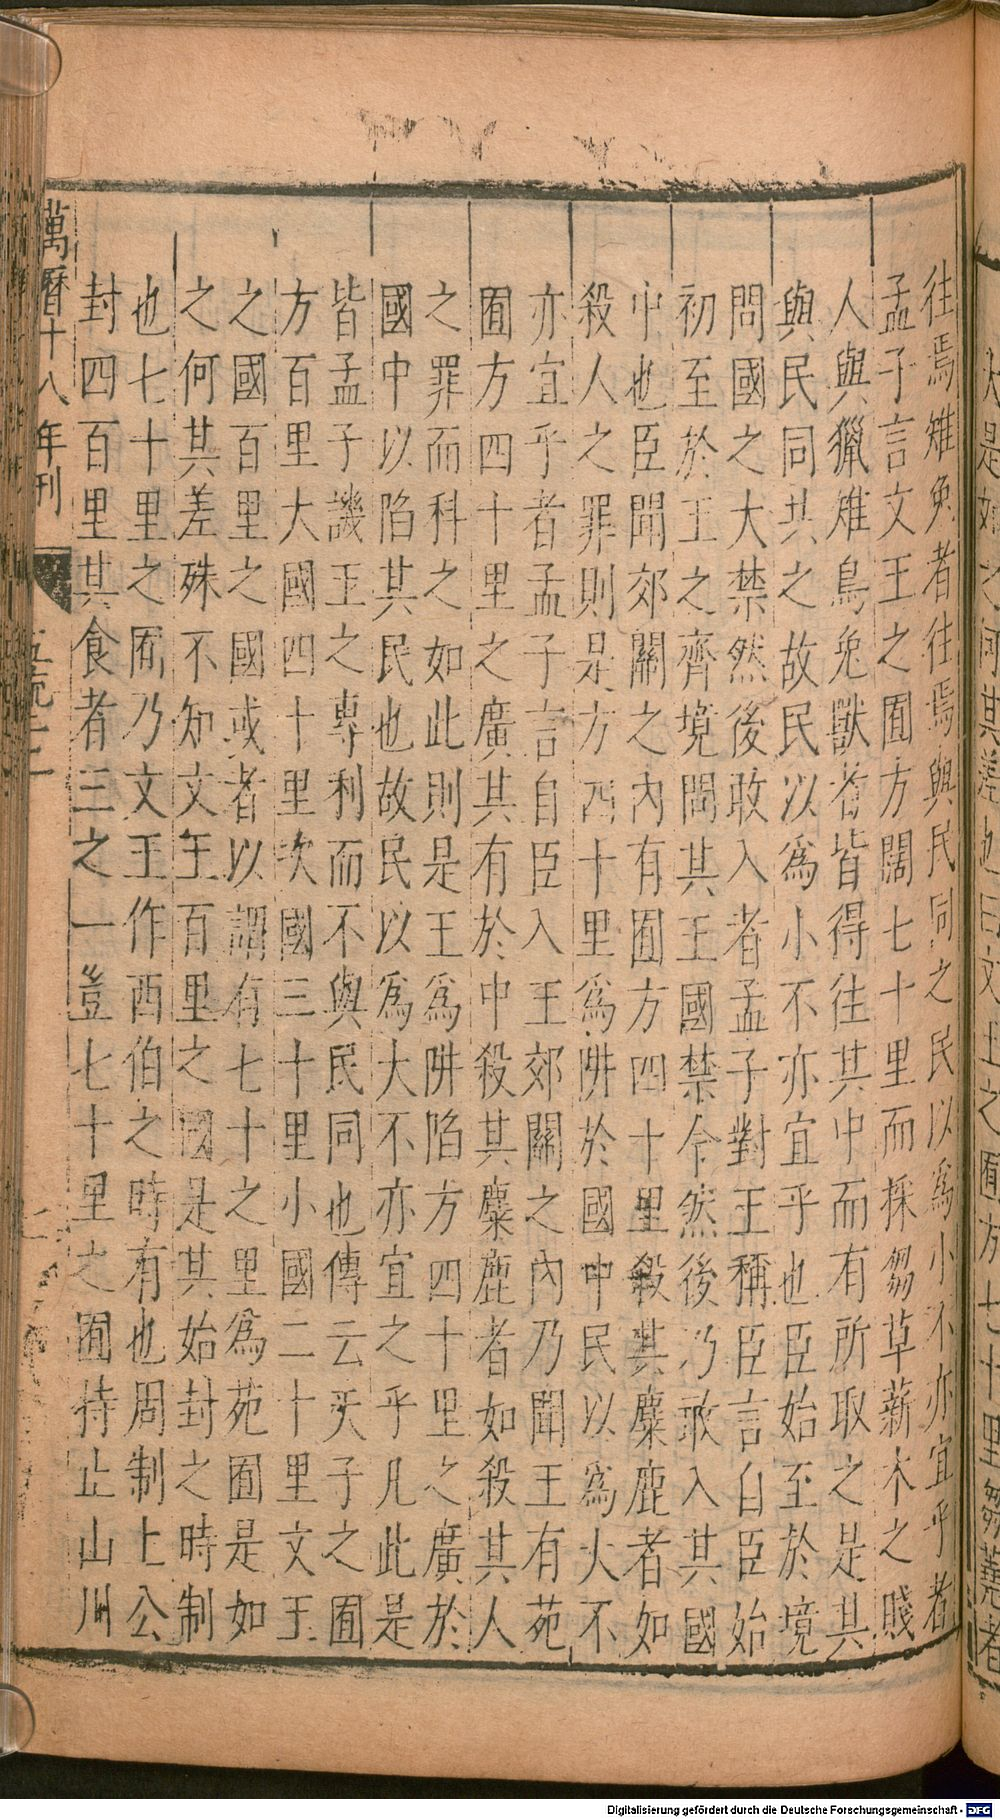 往焉雉兔者往焉與民同之民以爲小不亦宜乎者
孟子言文王之囿方闊七十里而採芻草薪木之賤
人與獵雉鳥兔獸者皆得往其中而有所取之是其
與民同共之故民以爲小不亦宜乎也臣始至於境
問國之大禁然後敢入者孟子對王稱臣言自臣始
初至於王之齊境問其王國禁令然後乃敢入其國
中也臣聞郊關之內有囿方四十里殺其麋鹿者如
殺人之罪則是方四十里爲阱於國中民以爲大不
亦宜乎者孟子言自臣入王郊關之內乃聞王有苑
囿方四十里之廣其有於中殺其麋鹿者如殺其人
之罪而科之如此則是王爲阱陷方四十里之廣於
國中以陷其民也故民以爲大不亦宜之乎凡此是
皆孟子譏王之專利而不與民同也傳云天子之囿
方百里大國四十里次國三十里小國二十里文王
之國百里之國或者以謂有七十之里爲苑囿是如
之何其差殊不知文王百里之國是其始封之時制
也七十里之囿乃文王作西伯之時有也周制上公
封四百里其食者三之一豈七十里之囿待止山川
萬曆十八年刊
大是如之何其差也曰文王之囿方七十里芻蕘者
Digitalisierung gefördert durch die Deutsche Forschungsgemeinschaft - DFG